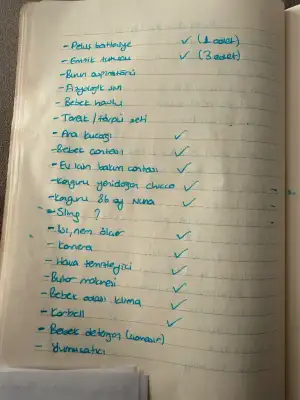 - Peluş battaniye ✓ (1 adet)
- Emzik tutucu ✓ (3 adet)
- Burun aspiratörü
- Fizyolojik sıvı
- Bebek havlu
- Tarak / törpü seti
- Ana kucağı ✓
- Bebek çantası ✓
- Ev için bakım çantası ✓
- Kanguru yenidoğan chicco ✓
- Kanguru 86 ay Nuna ✓
- Sling ?
- Isı, nem ölçer ✓
- Kamera ✓
- Hava temizleyici ✓
- Buhar makinesi ✓
- Bebek odası klima ✓
- Karbell ✓
- Bebek deterjan (camaşır)
- Yumuşatıcı